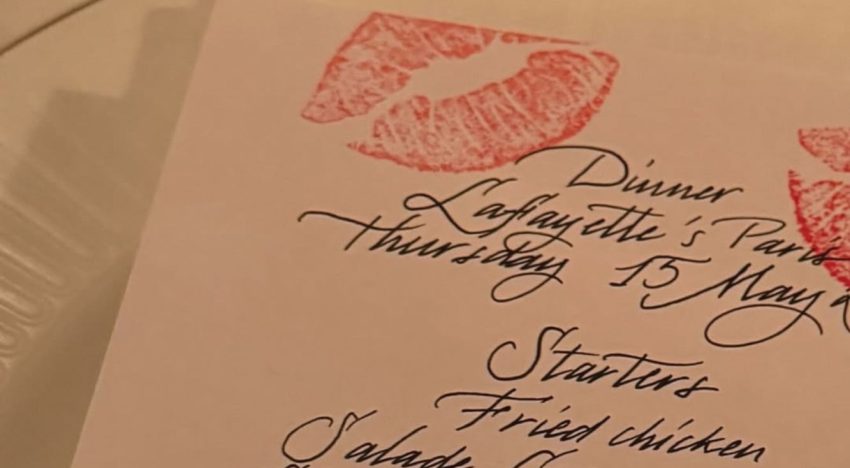 Dinner
Lafayette's Paris
Thursday 15 May
Starters
Fried chicken
Salade